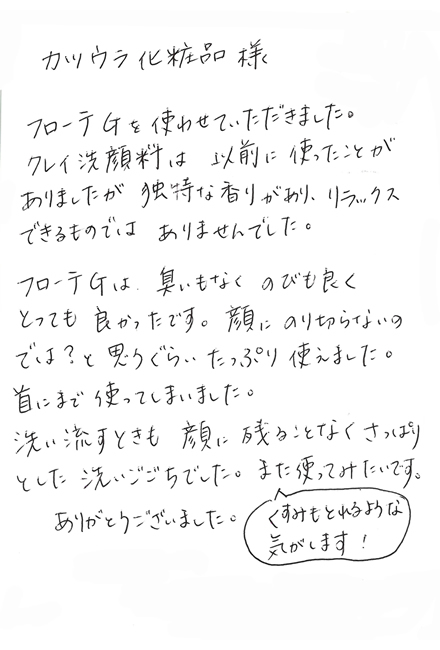 カツウラ化粧品様
フローテGを使わせていただきました。
クレイ洗顔料は 以前に使ったことが
ありましたが 独特な香りがあり、リラックス
できるものでは ありませんでした。
フローテGは、臭いもなく のびも良く
とっても 良かったです。顔に のり切らないの
では?と 思うぐらい たっぷり 使えました。
首にまで 使ってしまいました。
洗い流すときも 顔に 残ることなく さっぱり
とした 洗いごごちでした。また使ってみたいです。
ありがとうございました。
くすみもとれるような
気がします!